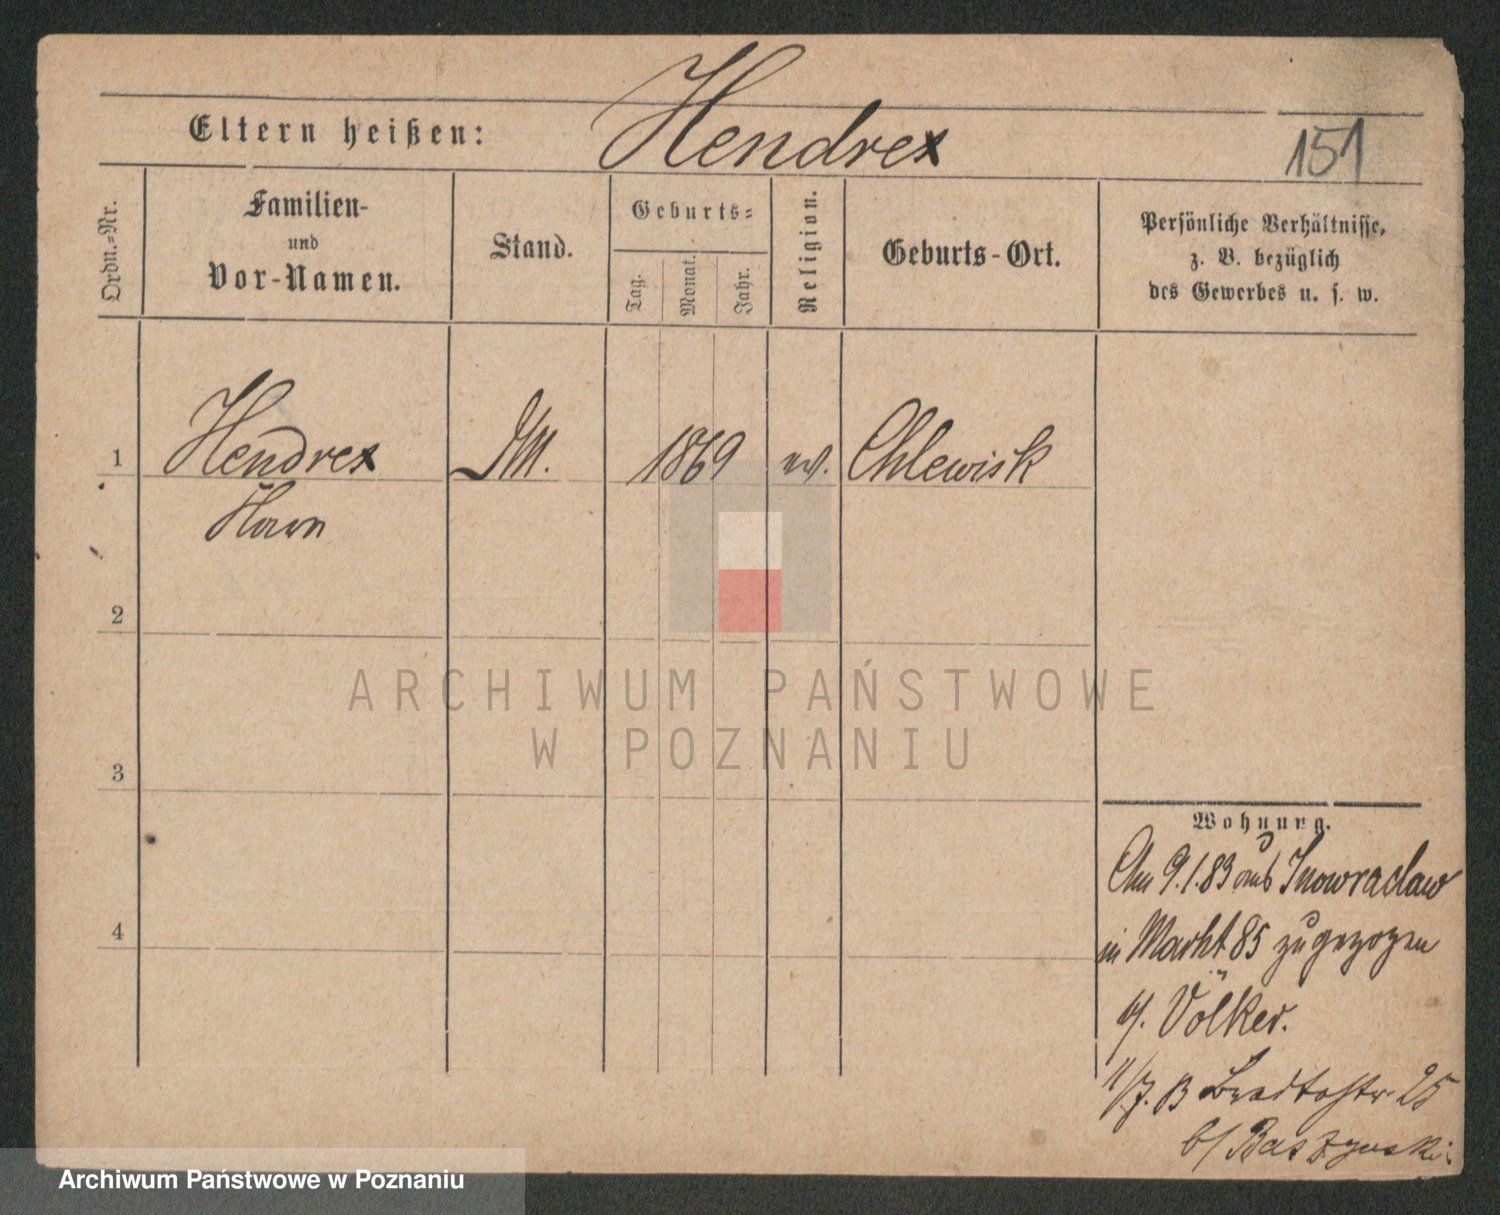 Hendrex
Eltern heißen:
151
Ordn.=Nr.
Familien-
und
Vor-Namen.
Stand.
Geburts=
Tag.
Monat.
Jahr.
Religion.
Geburts-Ort.
Persönliche Verhältnisse,
z. B. bezüglich
des Gewerbes u. s. w.
1 Hendrex 1869 Chlewisk
2
3
4
ARCHIWUM PAŃSTWOWE
W POZNANIU
Wohnung.
Am 9.1.83 aus Inowraclaw
in Markt 85 zugezogen
b/. Völker.
25
b/
Archiwum Państwowe w Poznaniu